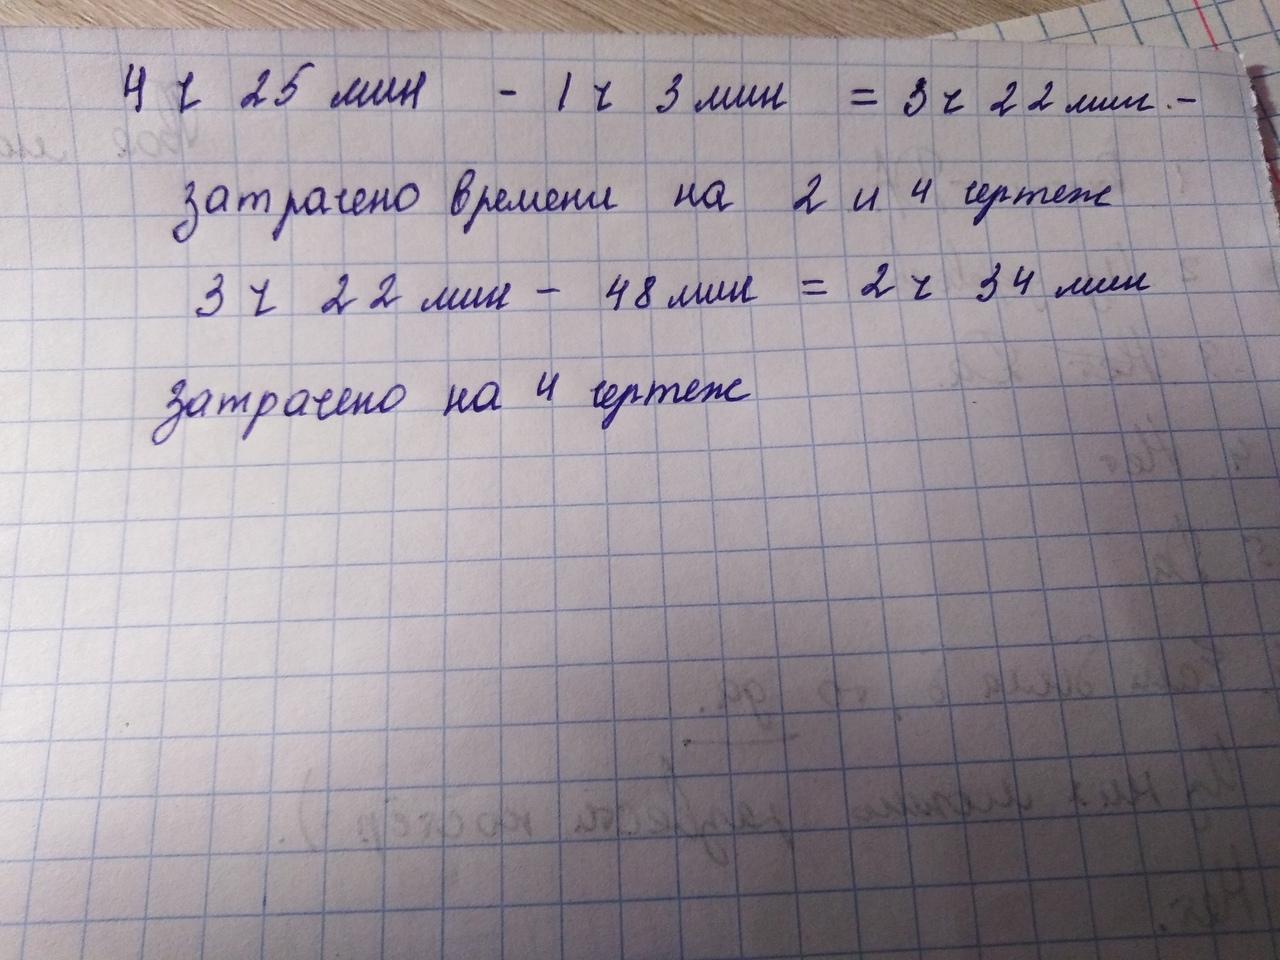 4 ч 25 мин - 1 ч 3 мин = 3 ч 22 мин. -
затрачено времени на 2 и 4 чертеж
3 ч 22 мин - 48 мин = 2 ч 34 мин
затрачено на 4 чертеж